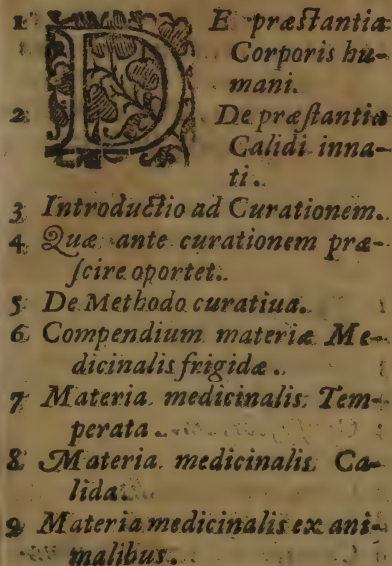 1 DE præstantia
Corporis hu-
mani.
2 De præstantia
Calidi inna-
ti.
3 Introductio ad Curationem.
4 Quæ ante curationem præ-
scire oportet.
5 De Methodo curatiua.
6 Compendium materiæ Me-
dicinalis frigidæ.
7 Materia medicinalis Tem-
perata.
8 Materia medicinalis Ca-
lida.
9 Materia medicinalis ex ani-
malibus.